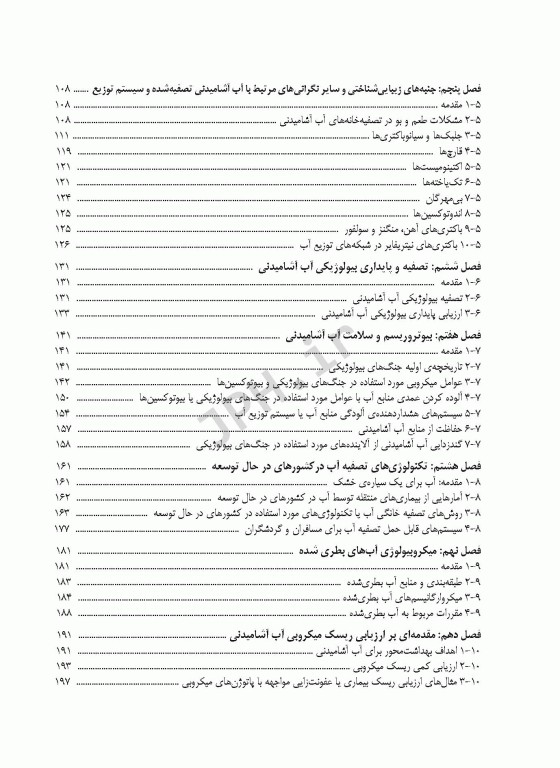 فصل پنجم: جنبه‌های زیبایی‌شناختی و سایر نگرانی‌های مرتبط با آب آشامیدنی تصفیه‌شده و سیستم توزیع ....... ۱۰۸
۵-۱ مقدمه ....... ۱۰۸
۵-۲ مشکلات طعم و بو در تصفیه‌خانه‌های آب آشامیدنی ....... ۱۰۸
۵-۳ جلبک‌ها و سیانوباکتری‌ها ....... ۱۱۱
۵-۴ قارچ‌ها ....... ۱۱۹
۵-۵ اکتینومیست‌ها ....... ۱۲۱
۵-۶ تک‌یاخته‌ها ....... ۱۲۱
۵-۷ بی‌مهرگان ....... ۱۲۴
۵-۸ اندوتوکسین‌ها ....... ۱۲۵
۵-۹ باکتری‌های آهن، منگنز و سولفور ....... ۱۲۵
۵-۱۰ باکتری‌های نیتریفایر در شبکه‌های توزیع آب ....... ۱۲۶
فصل ششم: تصفیه و پایداری بیولوژیکی آب آشامیدنی ....... ۱۳۱
۶-۱ مقدمه ....... ۱۳۱
۶-۲ تصفیه بیولوژیکی آب آشامیدنی ....... ۱۳۱
۶-۳ ارزیابی پایداری بیولوژیکی آب آشامیدنی ....... ۱۳۳
فصل هفتم: بیوتروریسم و سلامت آب آشامیدنی ....... ۱۴۱
۷-۱ مقدمه ....... ۱۴۱
۷-۲ تاریخچه‌ی اولیه جنگ‌های بیولوژیکی ....... ۱۴۱
۷-۳ عوامل میکروبی مورد استفاده در جنگ‌های بیولوژیکی و بیوتوکسین‌ها ....... ۱۴۲
۷-۴ آلوده کردن عمدی منابع آب با عوامل مورد استفاده در جنگ‌های بیولوژیکی یا بیوتوکسین‌ها ....... ۱۵۰
۷-۵ سیستم‌های هشداردهنده‌ی آلودگی منابع آب یا سیستم توزیع آب ....... ۱۵۴
۷-۶ حفاظت از منابع آب آشامیدنی ....... ۱۵۷
۷-۷ گندزدایی آب آشامیدنی از آلاینده‌های مورد استفاده در جنگ‌های بیولوژیکی ....... ۱۵۸
فصل هشتم: تکنولوژی‌های تصفیه آب در کشورهای در حال توسعه ....... ۱۶۱
۸-۱ مقدمه: آب برای یک سیاره‌ی خشک ....... ۱۶۱
۸-۲ آمارهایی از بیماری‌های منتقله توسط آب در کشورهای در حال توسعه ....... ۱۶۲
۸-۳ روش‌های تصفیه خانگی آب یا تکنولوژی‌های مورد استفاده در کشورهای در حال توسعه ....... ۱۶۳
۸-۴ سیستم‌های قابل حمل تصفیه آب برای مسافران و گردشگران ....... ۱۷۷
فصل نهم: میکروبیولوژی آب‌های بطری شده ....... ۱۸۱
۹-۱ مقدمه ....... ۱۸۱
۹-۲ طبقه‌بندی و منابع آب بطری‌شده ....... ۱۸۳
۹-۳ میکروارگانیسم‌های آب بطری‌شده ....... ۱۸۴
۹-۴ مقررات مربوط به آب بطری‌شده ....... ۱۸۸
فصل دهم: مقدمه‌ای بر ارزیابی ریسک میکروبی آب آشامیدنی ....... ۱۹۱
۱۰-۱ اهداف بهداشت‌محور برای آب آشامیدنی ....... ۱۹۱
۱۰-۲ ارزیابی کمی ریسک میکروبی ....... ۱۹۳
۱۰-۳ مثال‌های ارزیابی ریسک بیماری یا عفونت‌زایی مواجهه با پاتوژن‌های میکروبی ....... ۱۹۷